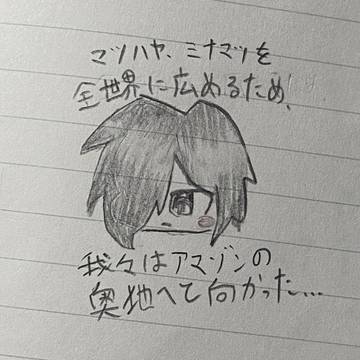 マツハヤ、ミナマツを
全世界に広めるため、
我々はアマゾンの
奥地へて向かった…